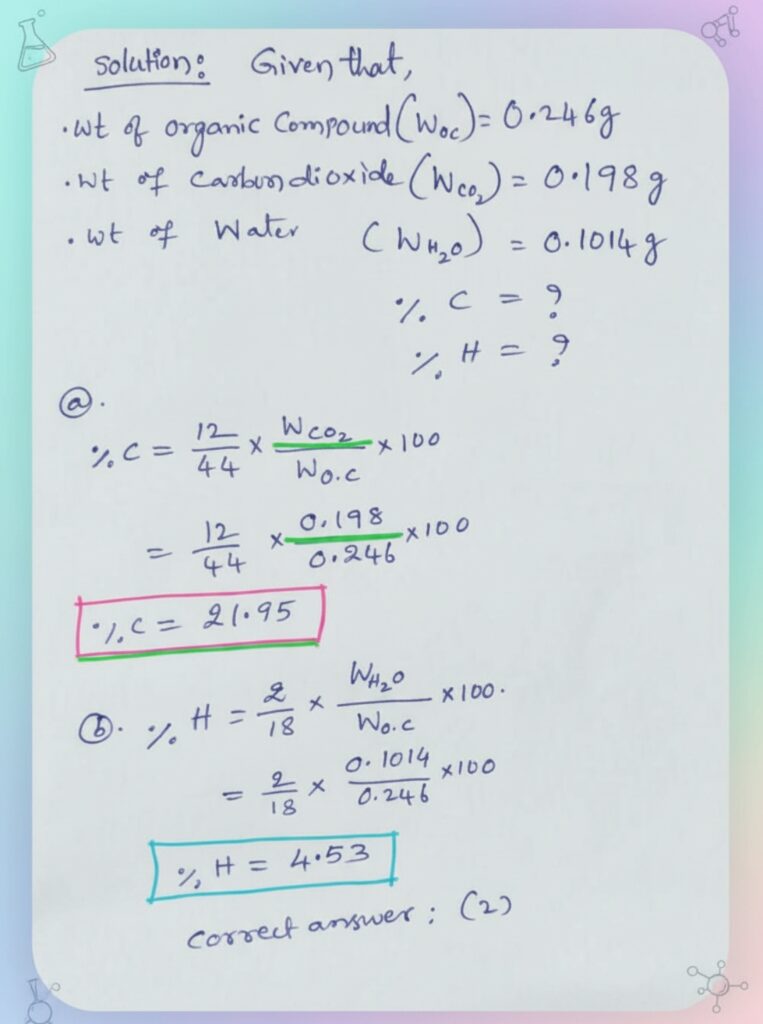 Solution: Given that,
• wt of organic Compound (Woc) = 0.246g
• wt of Carbondioxide (Wco₂) = 0.198 g
• wt of Water (WH₂O) = 0.1014 g
% C = ?
% H = ?
ⓐ.
% C = 12/44 × Wco₂/Wo.c × 100
= 12/44 × 0.198/0.246 × 100
% C = 21.95
ⓑ. % H = 2/18 × WH₂O/Wo.c × 100.
= 2/18 × 0.1014/0.246 × 100
% H = 4.53
Correct answer : (2)